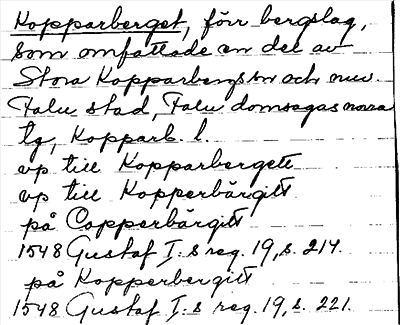 Kopparberget, förr bergslag,
som omfattade en del av
Stora Kopparbergs sn och nuv.
Falu stad, Falu domsagas norra
tg, Kopparb. l.
vp till Kopparbergett
vp till Kopperbärgitt
på Copperbärgitt
1548 Gustaf I:s reg. 19, s. 214.
på Kopperbergitt
1548 Gustaf I:s reg. 19, s. 221.